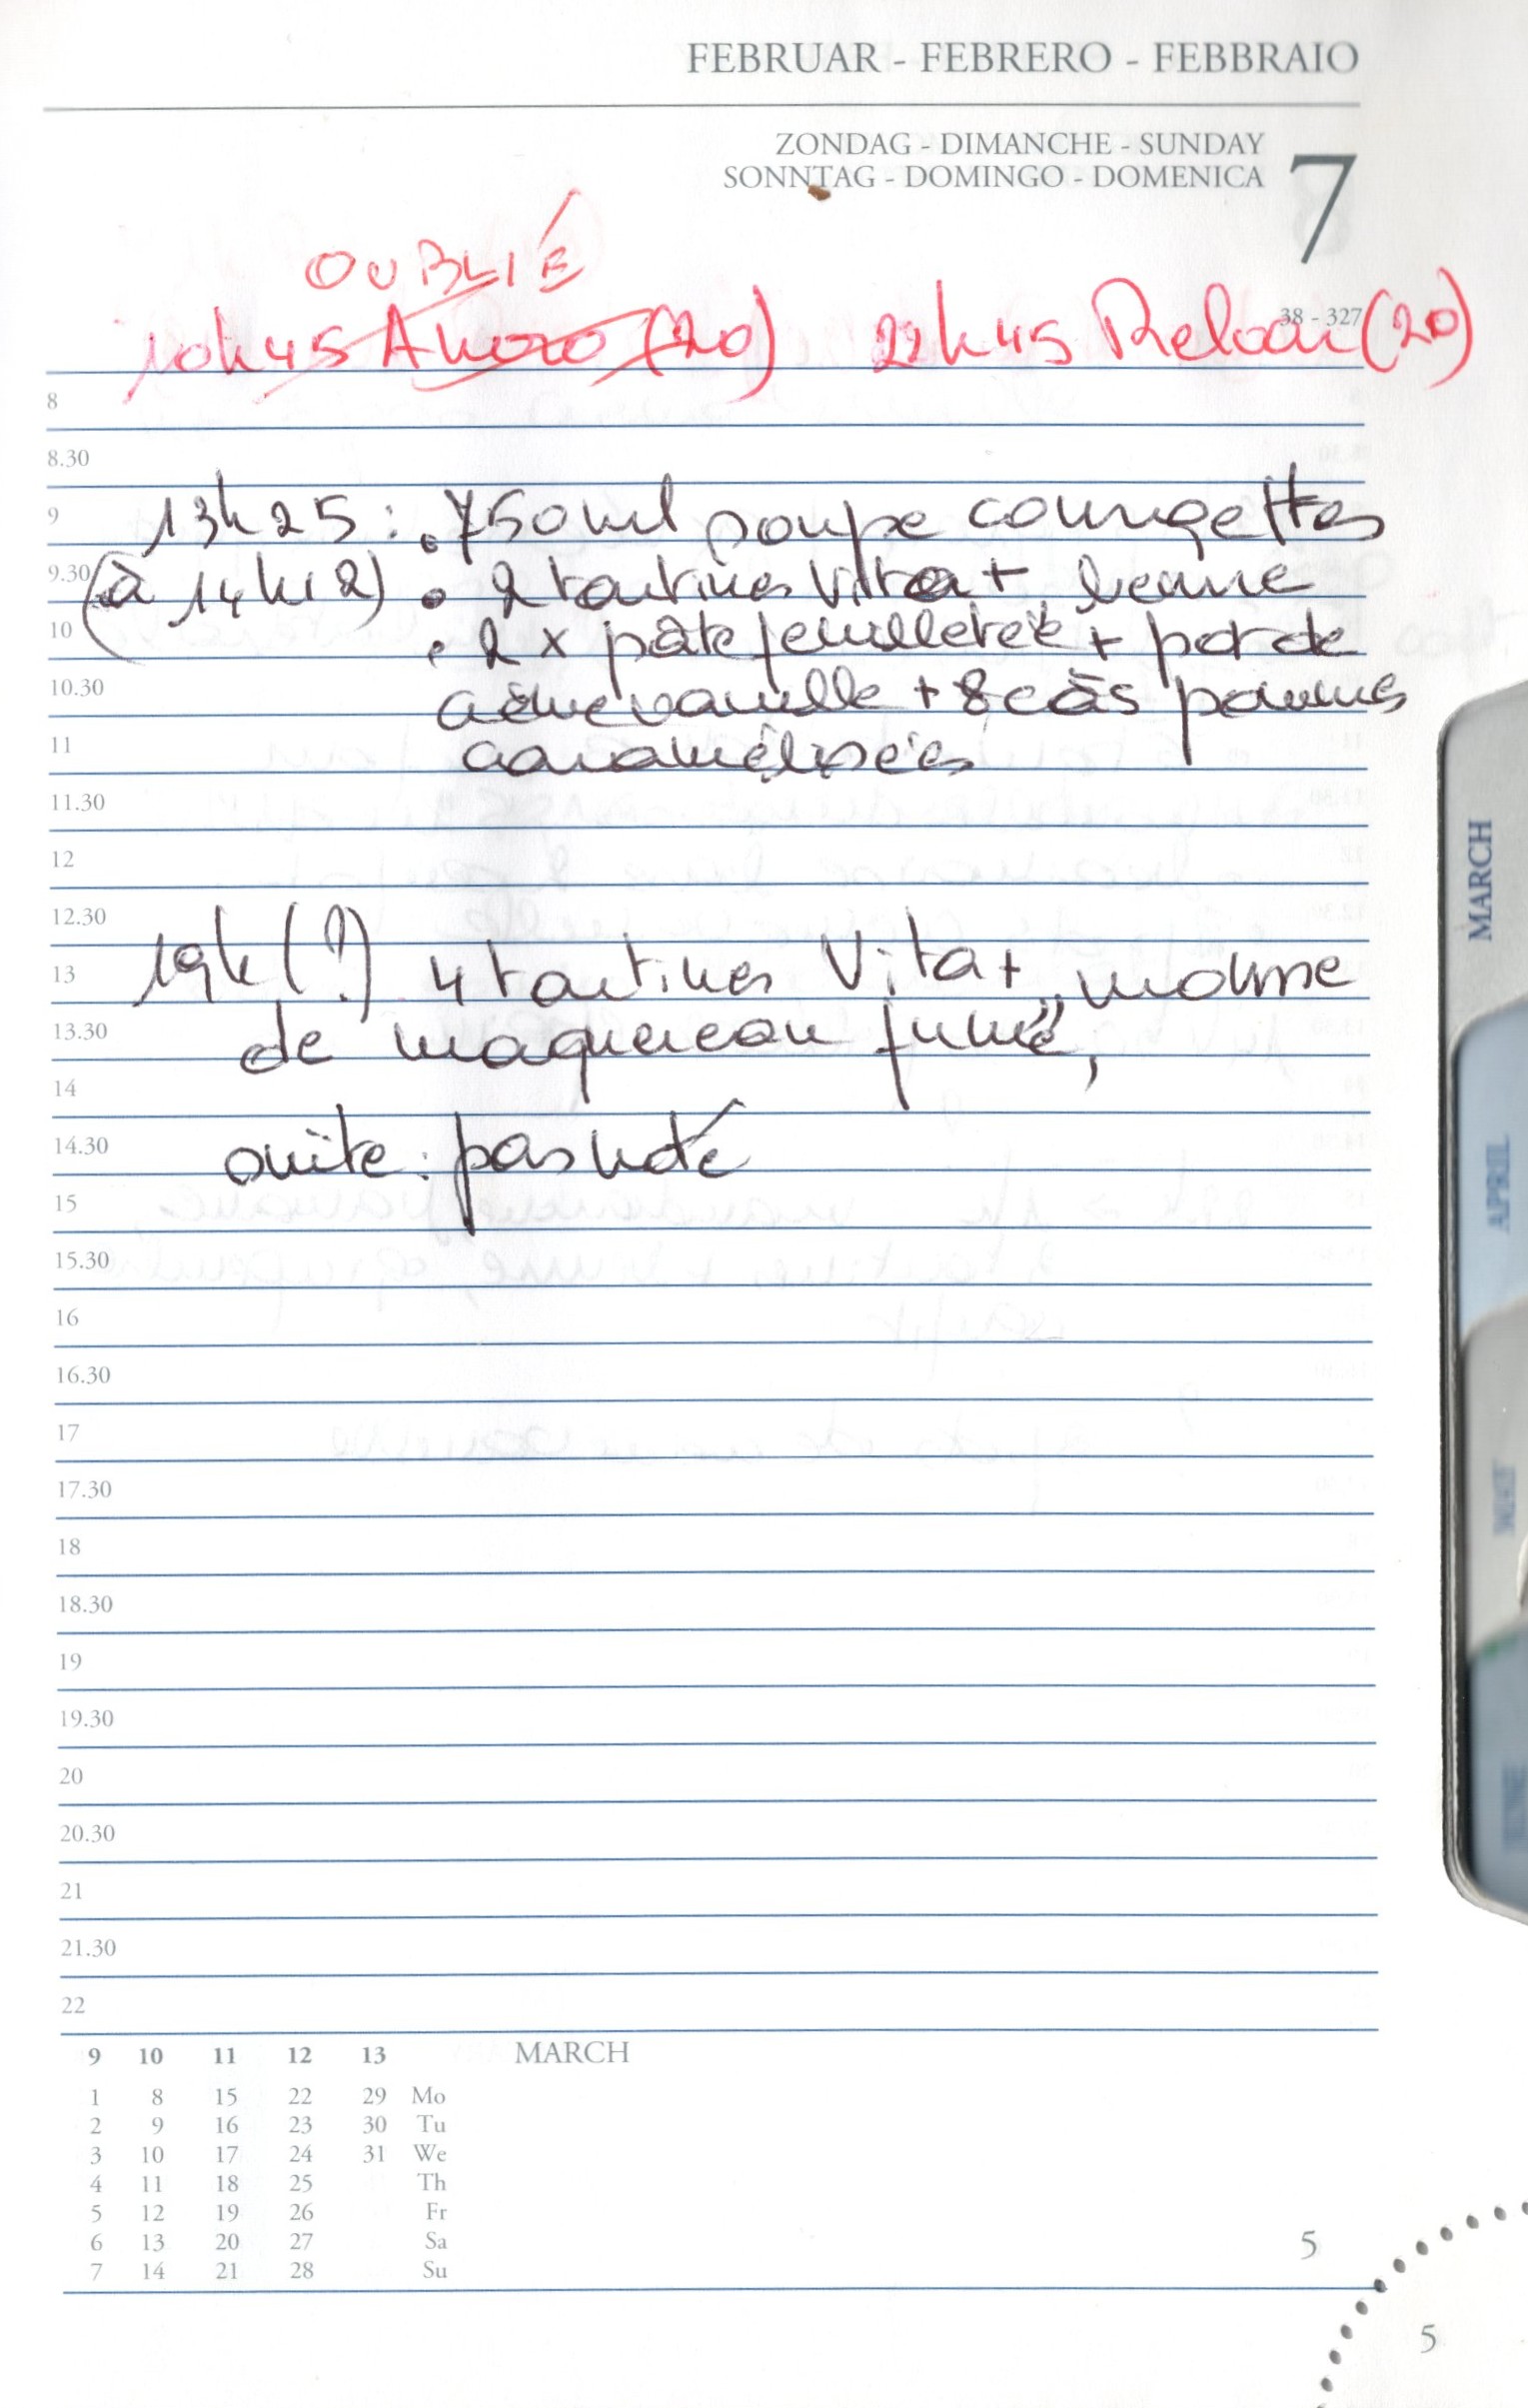 FEBRUAR - FEBRERO - FEBBRAIO
ZONDAG - DIMANCHE - SUNDAY
SONNTAG - DOMINGO - DOMENICA
7
OUBLIÉ
38 - 327
10h45 (20) 22h45 (20)
8
8.30
9 13h25 : • 750ml soupe courgettes
9.30 (à 14h12) • 2 tartines Vita+ beurre
10 • 2 x pâte feuilletée + pot de
10.30 crème vanille + 8 càs pommes
11 caramélisées
11.30
12
12.30
13 19h (?) 4 tartines Vita+ "mousse
13.30 de maquereau fumé",
14
14.30 suite : pas noté
15
15.30
16
16.30
17
17.30
18
18.30
19
19.30
20
20.30
21
21.30
22
9 10 11 12 13 MARCH
1 8 15 22 29 Mo
2 9 16 23 30 Tu
3 10 17 24 31 We
4 11 18 25 Th
5 12 19 26 Fr
6 13 20 27 Sa
7 14 21 28 Su
5
5
MARCH
APRIL